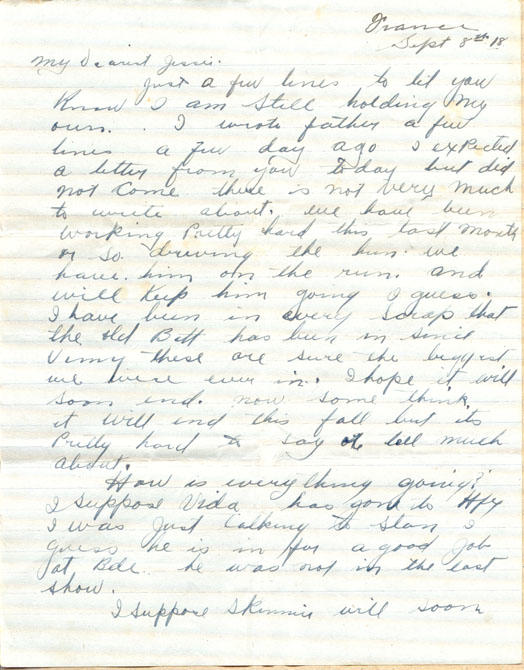 France
Sept 8th 18
My Dearest Jessie.
Just a few lines to let you
Know I am still holding my
own. . I wrote father a few
lines a few day ago I expected
a letter from you today but did
not Come there is not very much
to write about. we have been
working Pretty hard this last month
or so driving the hun. we
have him on the run. and
will Keep him going I guess.
I have been in every scrap that
the old Batt has been in since
Vimy these are sure the biggest
we were ever in. I hope it will
soon end. now some think
it will end this fall but its
Pretty hard to say or tell much
about.
How is everything going?
I suppose Vida has gone to Hfx
I was just talking to Stan I
guess he is in for a good job
at Bde. he was not in the last
show.
I suppose Skinnie will soon